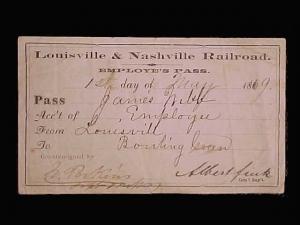 Louisville & Nashville Railroad.
EMPLOYE'S PASS.
1st day of May 1869
Pass James
Acc't of Employe
From Louisvill
To Bowling Green
Countersigned by
Perkins Albert Fink
Gen'l Sup't.